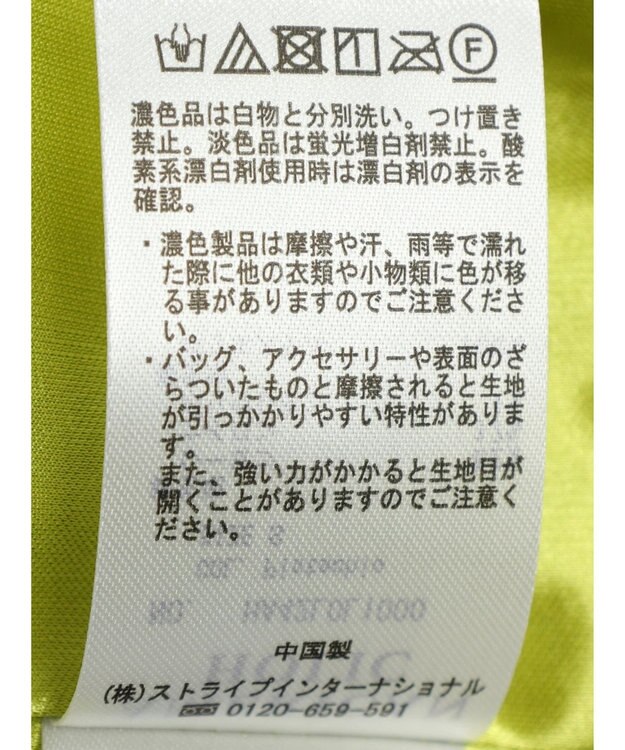 濃色品は白物と分別洗い。つけ置き
禁止。淡色品は蛍光増白剤禁止。酸
素系漂白剤使用時は漂白剤の表示を
確認。
・濃色製品は摩擦や汗、雨等で濡れ
た際に他の衣類や小物類に色が移
る事がありますのでご注意くださ
い。
・バッグ、アクセサリーや表面のざ
らついたものと摩擦されると生地
が引っかかりやすい特性がありま
す。
また、強い力がかかると生地目が
開くことがありますのでご注意く
ださい。
中国製
(株)ストライプインターナショナル
0120-659-591